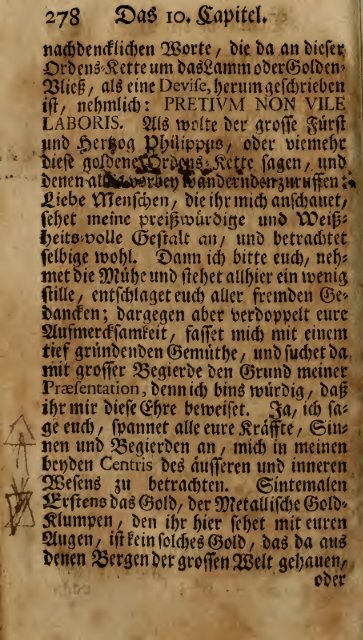 278 Das 10. Capitel.
nachdencklichen Worte, die da an dieser
Ordens-Kette um das Lamm oder Golden-
Vließ, als eine Devise, herum geschrieben
ist, nehmlich: PRETIVM NON VILE
LABORIS. Als wolte der grosse Fürst
und Hertzog Philippus, oder viemehr
diese goldene Ordens-Kette sagen, und
denen vorbey wandernden zuruffen:
Liebe Menschen, die ihr mich anschauet,
sehet meine preißwürdige und Weiß-
heits-volle Gestalt an, und betrachtet
selbige wohl. Dann ich bitte euch, neh-
met die Mühe und stehet allhier ein wenig
stille, entschlaget euch aller fremden Ge-
dancken; dargegen aber verdoppelt eure
Aufmercksamkeit, fasset mich mit einem
tief gründenden Gemüthe, und suchet da
mit grosser Begierde den Grund meiner
Præsentation, denn ich bins würdig, daß
ihr mir diese Ehre beweiset. Ja, ich sa-
ge euch, spannet alle eure Kräffte, Sin-
nen und Begierden an, mich in meinen
beyden Centris des äusseren und inneren
Wesens zu betrachten. Sintemalen
Erstens das Gold, der Metallische Gold-
Klumpen, den ihr hier sehet mit euren
Augen, ist kein solches Gold, das da aus
denen Bergen der grossen Welt gehauen,
oder